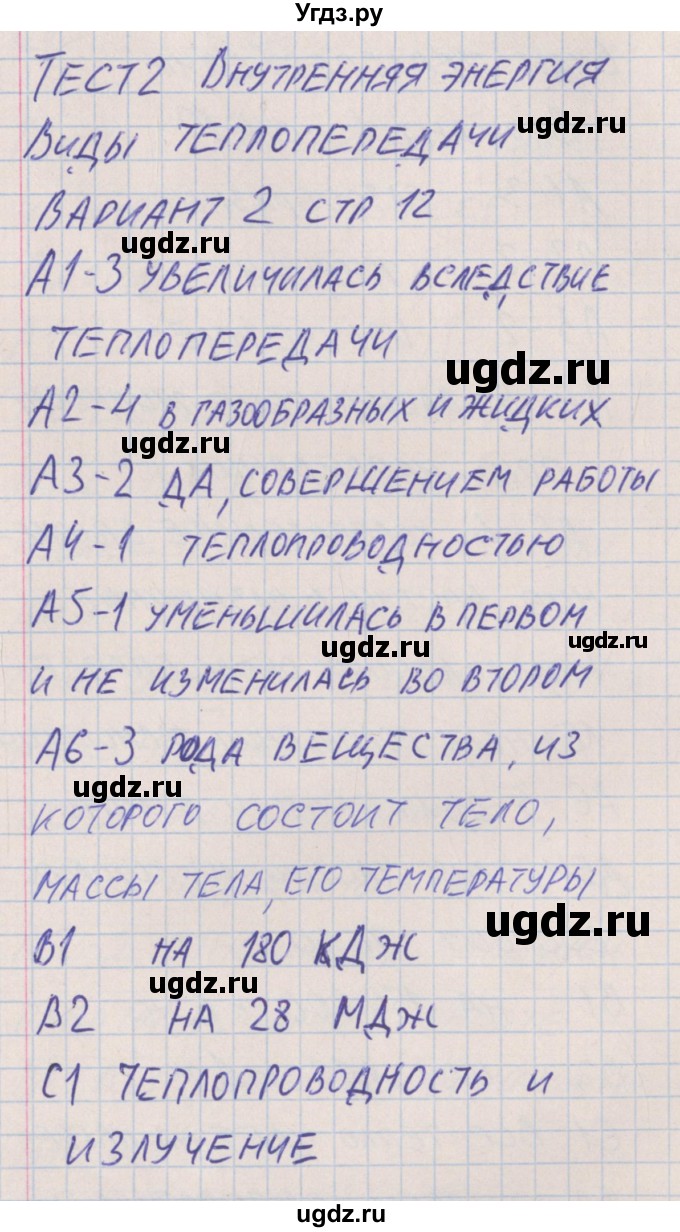 Угдз.ру
ТЕСТ 2 ВНУТРЕННЯЯ ЭНЕРГИЯ
ugdz.ru
ВИДЫ ТЕПЛОПЕРЕДАЧИ
ВАРИАНТ 2 СТР 12
ugdz.ru
А1-3 УВЕЛИЧИЛАСЬ ВСЛЕДСТВИЕ
ТЕПЛОПЕРЕДАЧИ
ugdz.ru
А2-4 В ГАЗООБРАЗНЫХ И ЖИДКИХ
ugdz.ru
А3-2 ДА, СОВЕРШЕНИЕМ РАБОТЫ
А4-1 ТЕПЛОПРОВОДНОСТЬЮ
А5-1 УМЕНЬШИЛАСЬ В ПЕРВОМ
ugdz.ru
ugdz.ru
И НЕ ИЗМЕНИЛАСЬ ВО ВТОРОМ
А6-3 РОДА ВЕЩЕСТВА, ИЗ
ugdz.ru
КОТОРОГО СОСТОИТ ТЕЛО,
МАССЫ ТЕЛА, ЕГО ТЕМПЕРАТУРЫ
ugdz.ru
В1 НА 180 КДЖ
ugdz.ru
В2 НА 28 МДЖ
С1 ТЕПЛОПРОВОДНОСТЬ И
ugdz.ru
ИЗЛУЧЕНИЕ
ugdz.ru